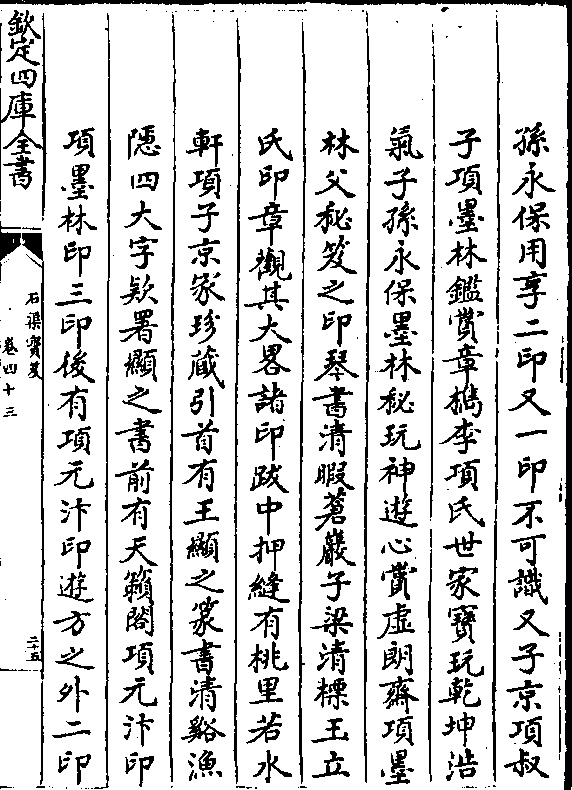 孫永保用享二印又一印不可識又子京項叔
子項墨林鑑賞章檇李項氏世家寶玩乾坤浩
氣子孫永保墨林秘玩神遊心賞虛朗齋項墨
林父秘笈之印琴書清暇蒼巖子梁清標玉立
氏印章觀其大畧諸印跋中押縫有桃里若水
軒項子京家珍蔵引首有王顯之篆書清谿漁
隱四大字欵署顯之書前有天籟閣項元汴印
項墨林印三印後有項元汴印遊方之外二印
欽定四庫全書
石渠寶笈
卷四十三
二十五